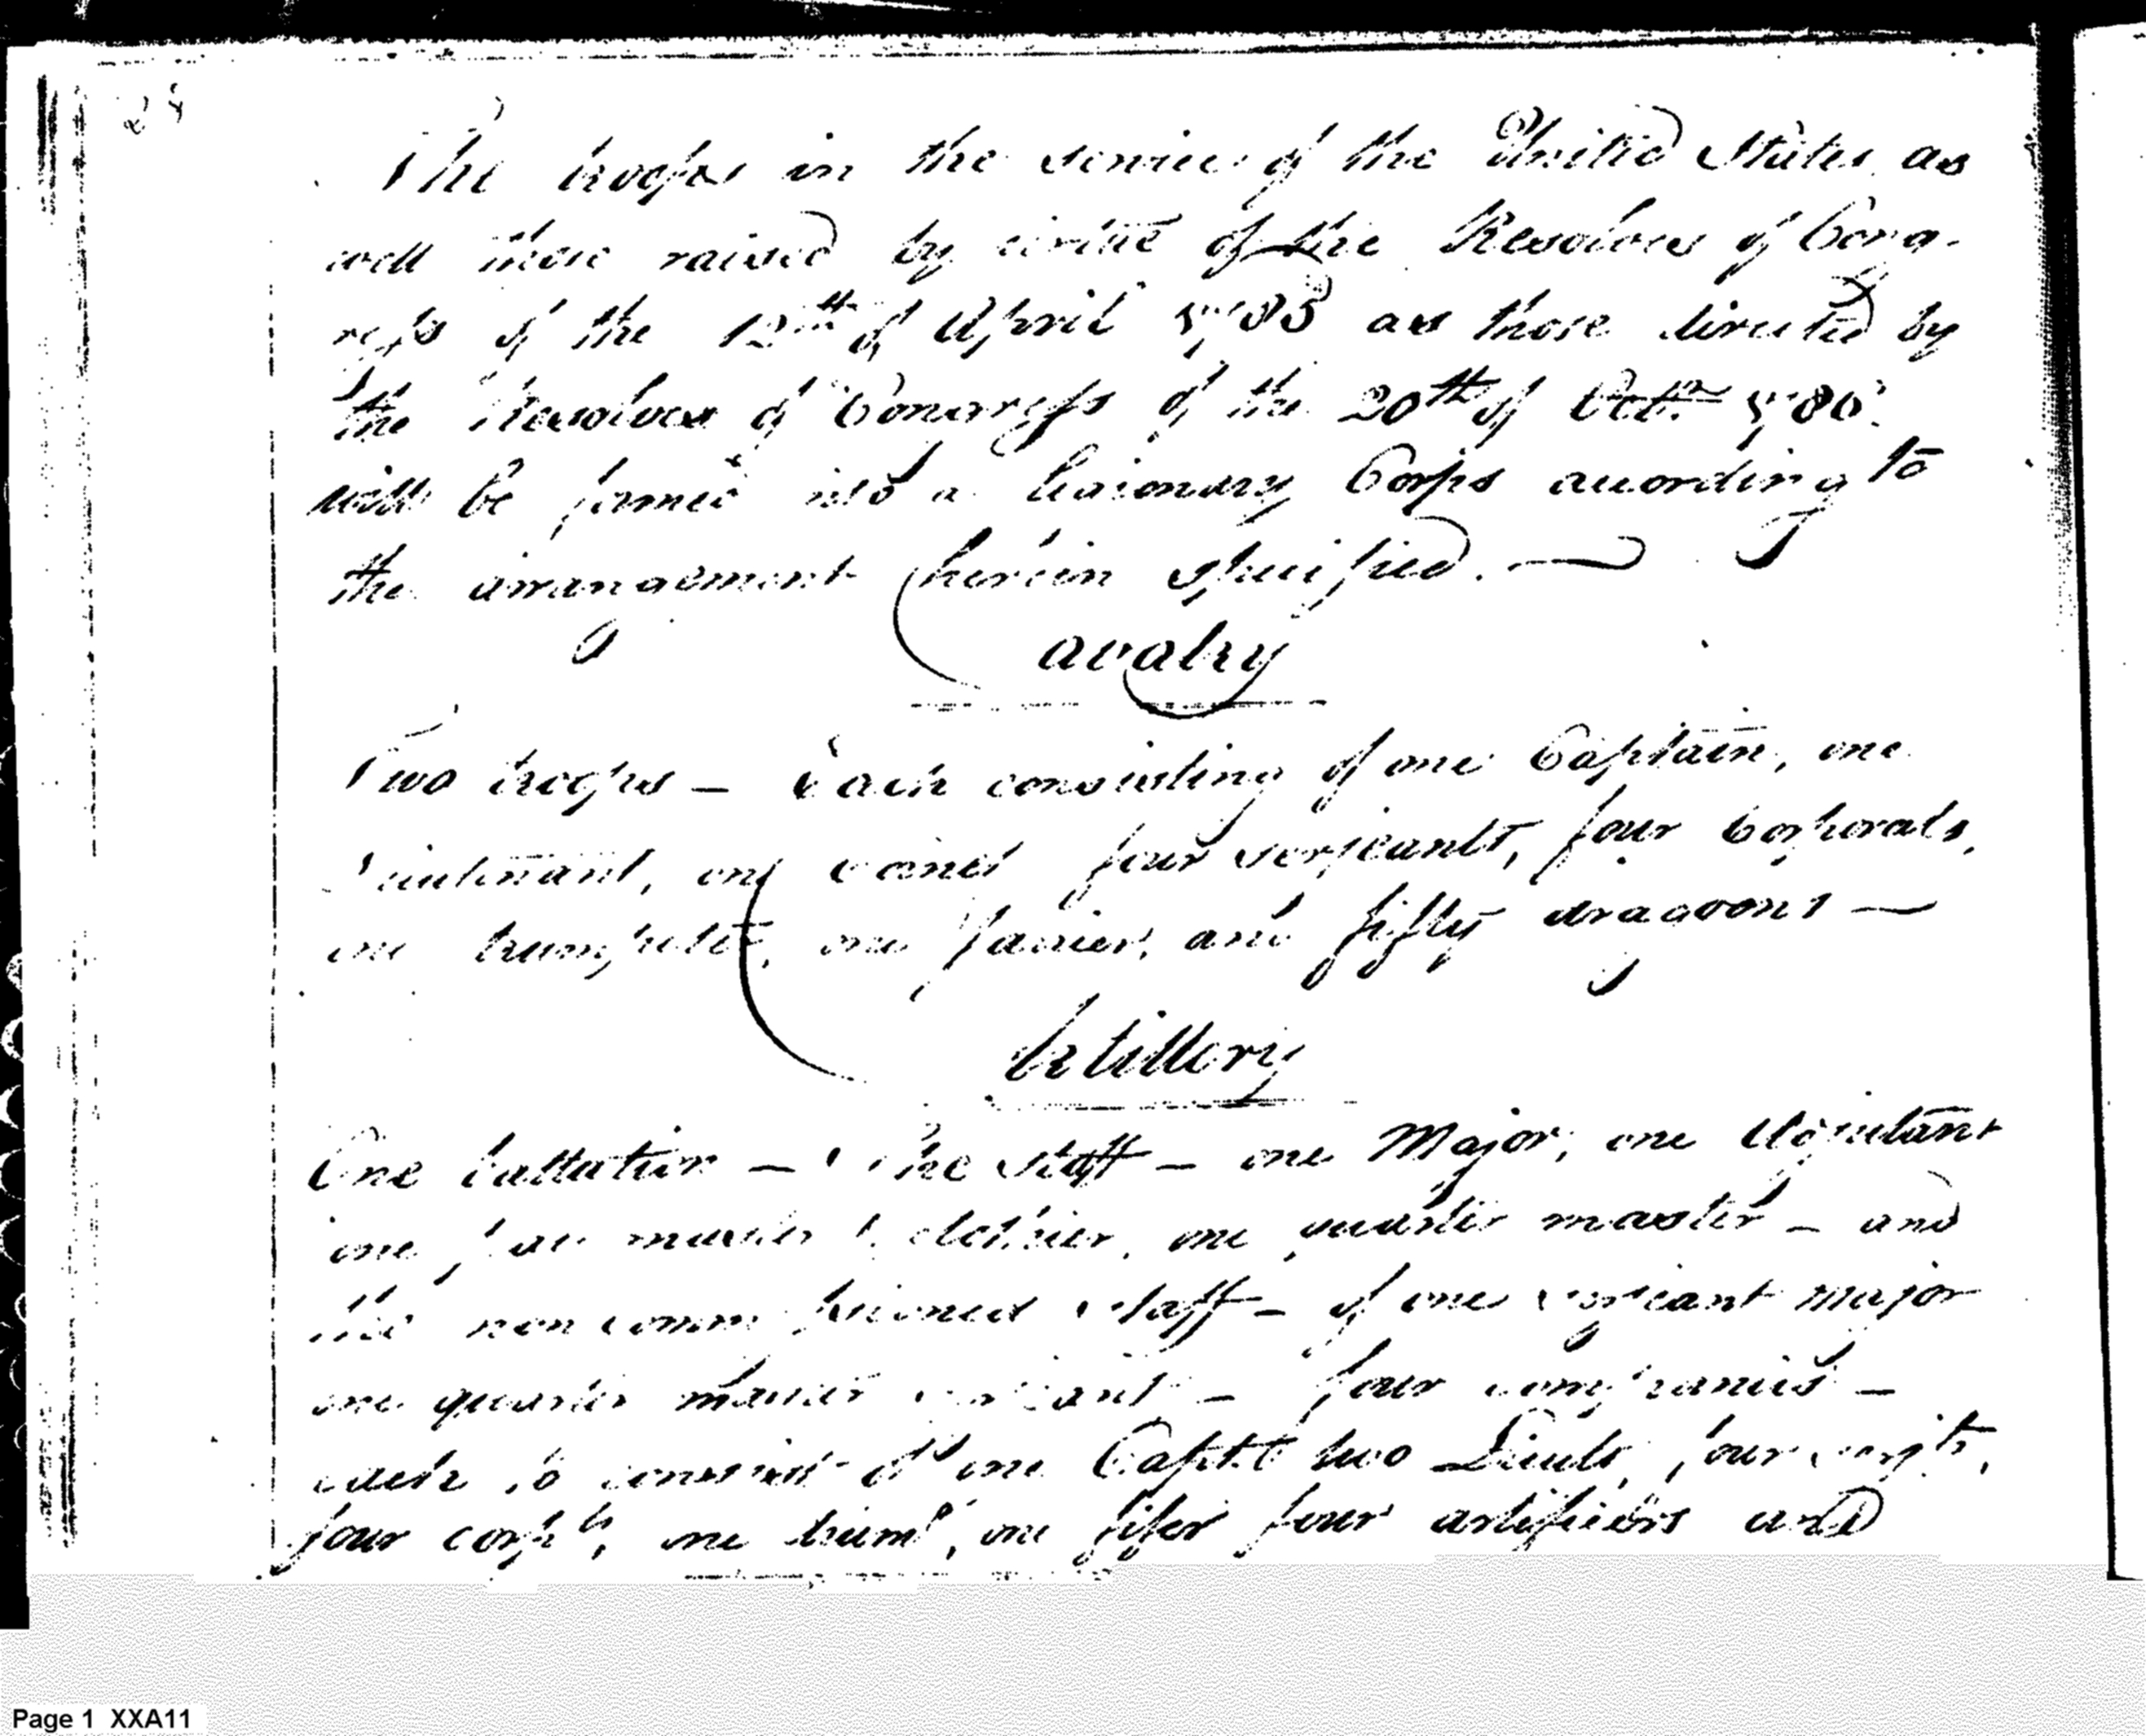 24
The troops in the service of the United States as
well those raised by virtue of the Resolves of Cong-
ress of the 12th of April 1785 as those directed by
the Resolves of Congress of the 20th of Octr 1786
will be formed into a Legionary Corps according to
the arrangement herein specified. —
Cavalry
Two troops — Each consisting of one Captain, one
Lieutenant, one cornet four serjeants, four Corporals,
one trumpeter, one farrier, and fifty dragoons —
Artillery
One battalion — The Staff — one Major, one Adjutant
one pay master & clothier, one quarter master — and
the non commissioned staff — of one serjeant major
one quarter master serjeant — four companies —
each to consist of one Captn two Lieuts, four sergts,
four corpls, one drumr, one fifer four artificers and
Page 1 XXA11